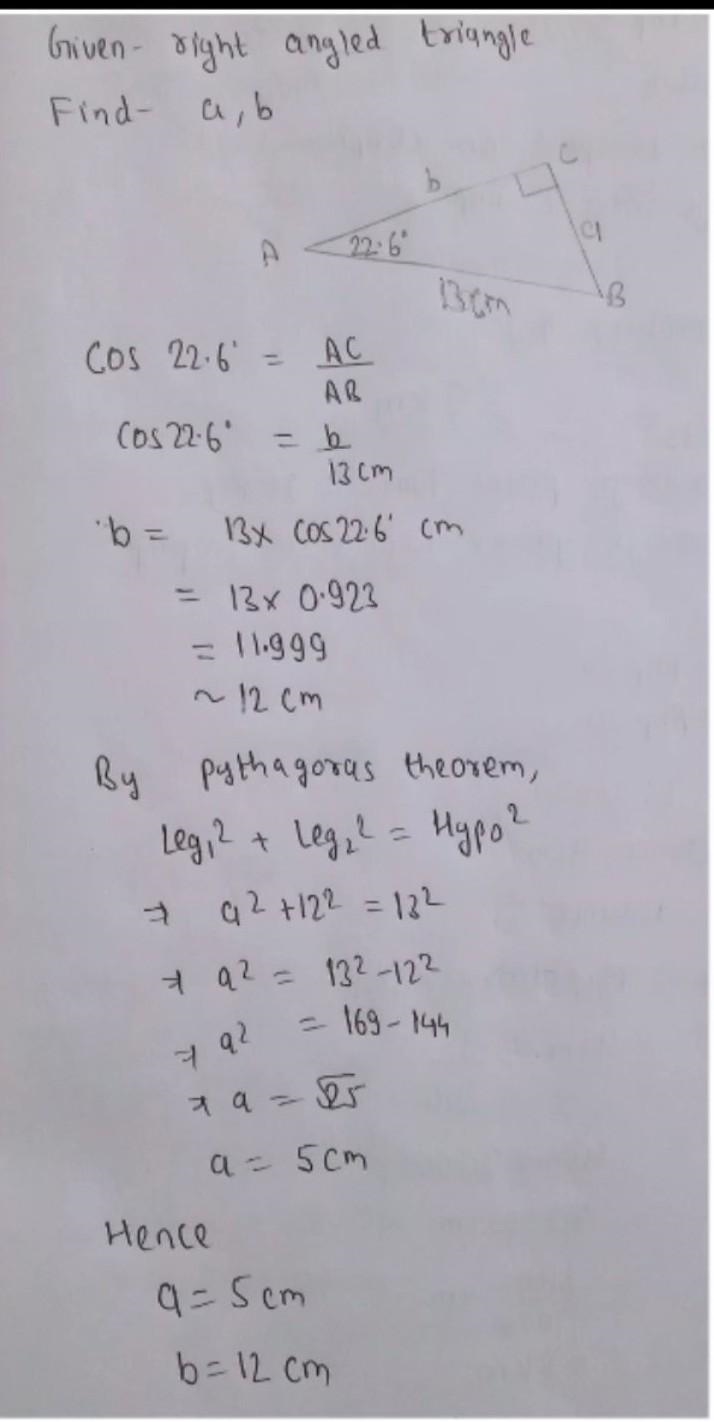 Given- right angled triangle
Find- a, b
C
b
a
A
22.6°
13cm
B
Cos 22.6° = AC/AB
Cos 22.6° = b/13 cm
b = 13x cos 22.6° cm
= 13x 0.923
= 11.999
~ 12 cm
By pythagoras theorem,
Leg₁² + Leg₂² = Hypo²
⇒ a² + 12² = 13²
⇒ a² = 13² - 12²
⇒ a² = 169 - 144
⇒ a = √25
a = 5 cm
Hence
a = 5 cm
b = 12 cm